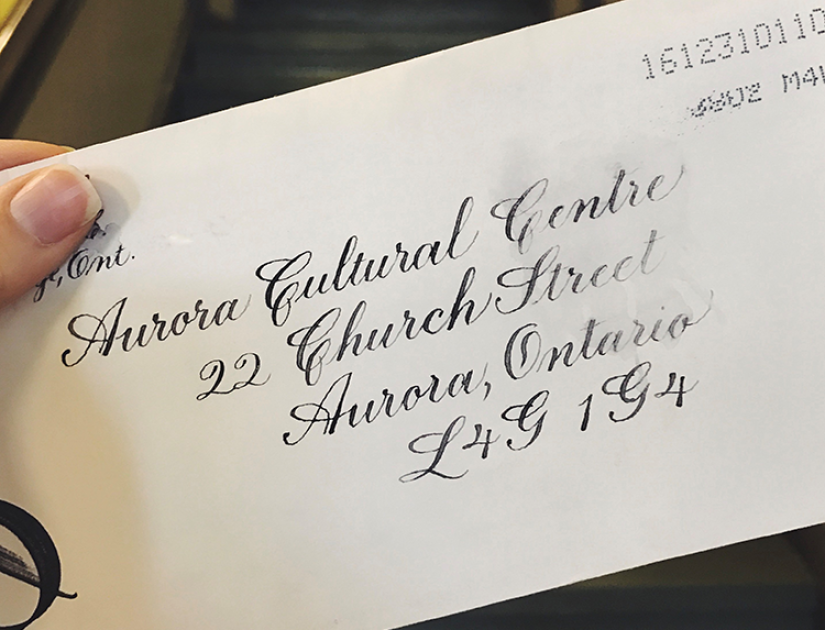 1612310110
M4
Ont.
Aurora Cultural Centre
22 Church Street
Aurora, Ontario
L4G 1G4